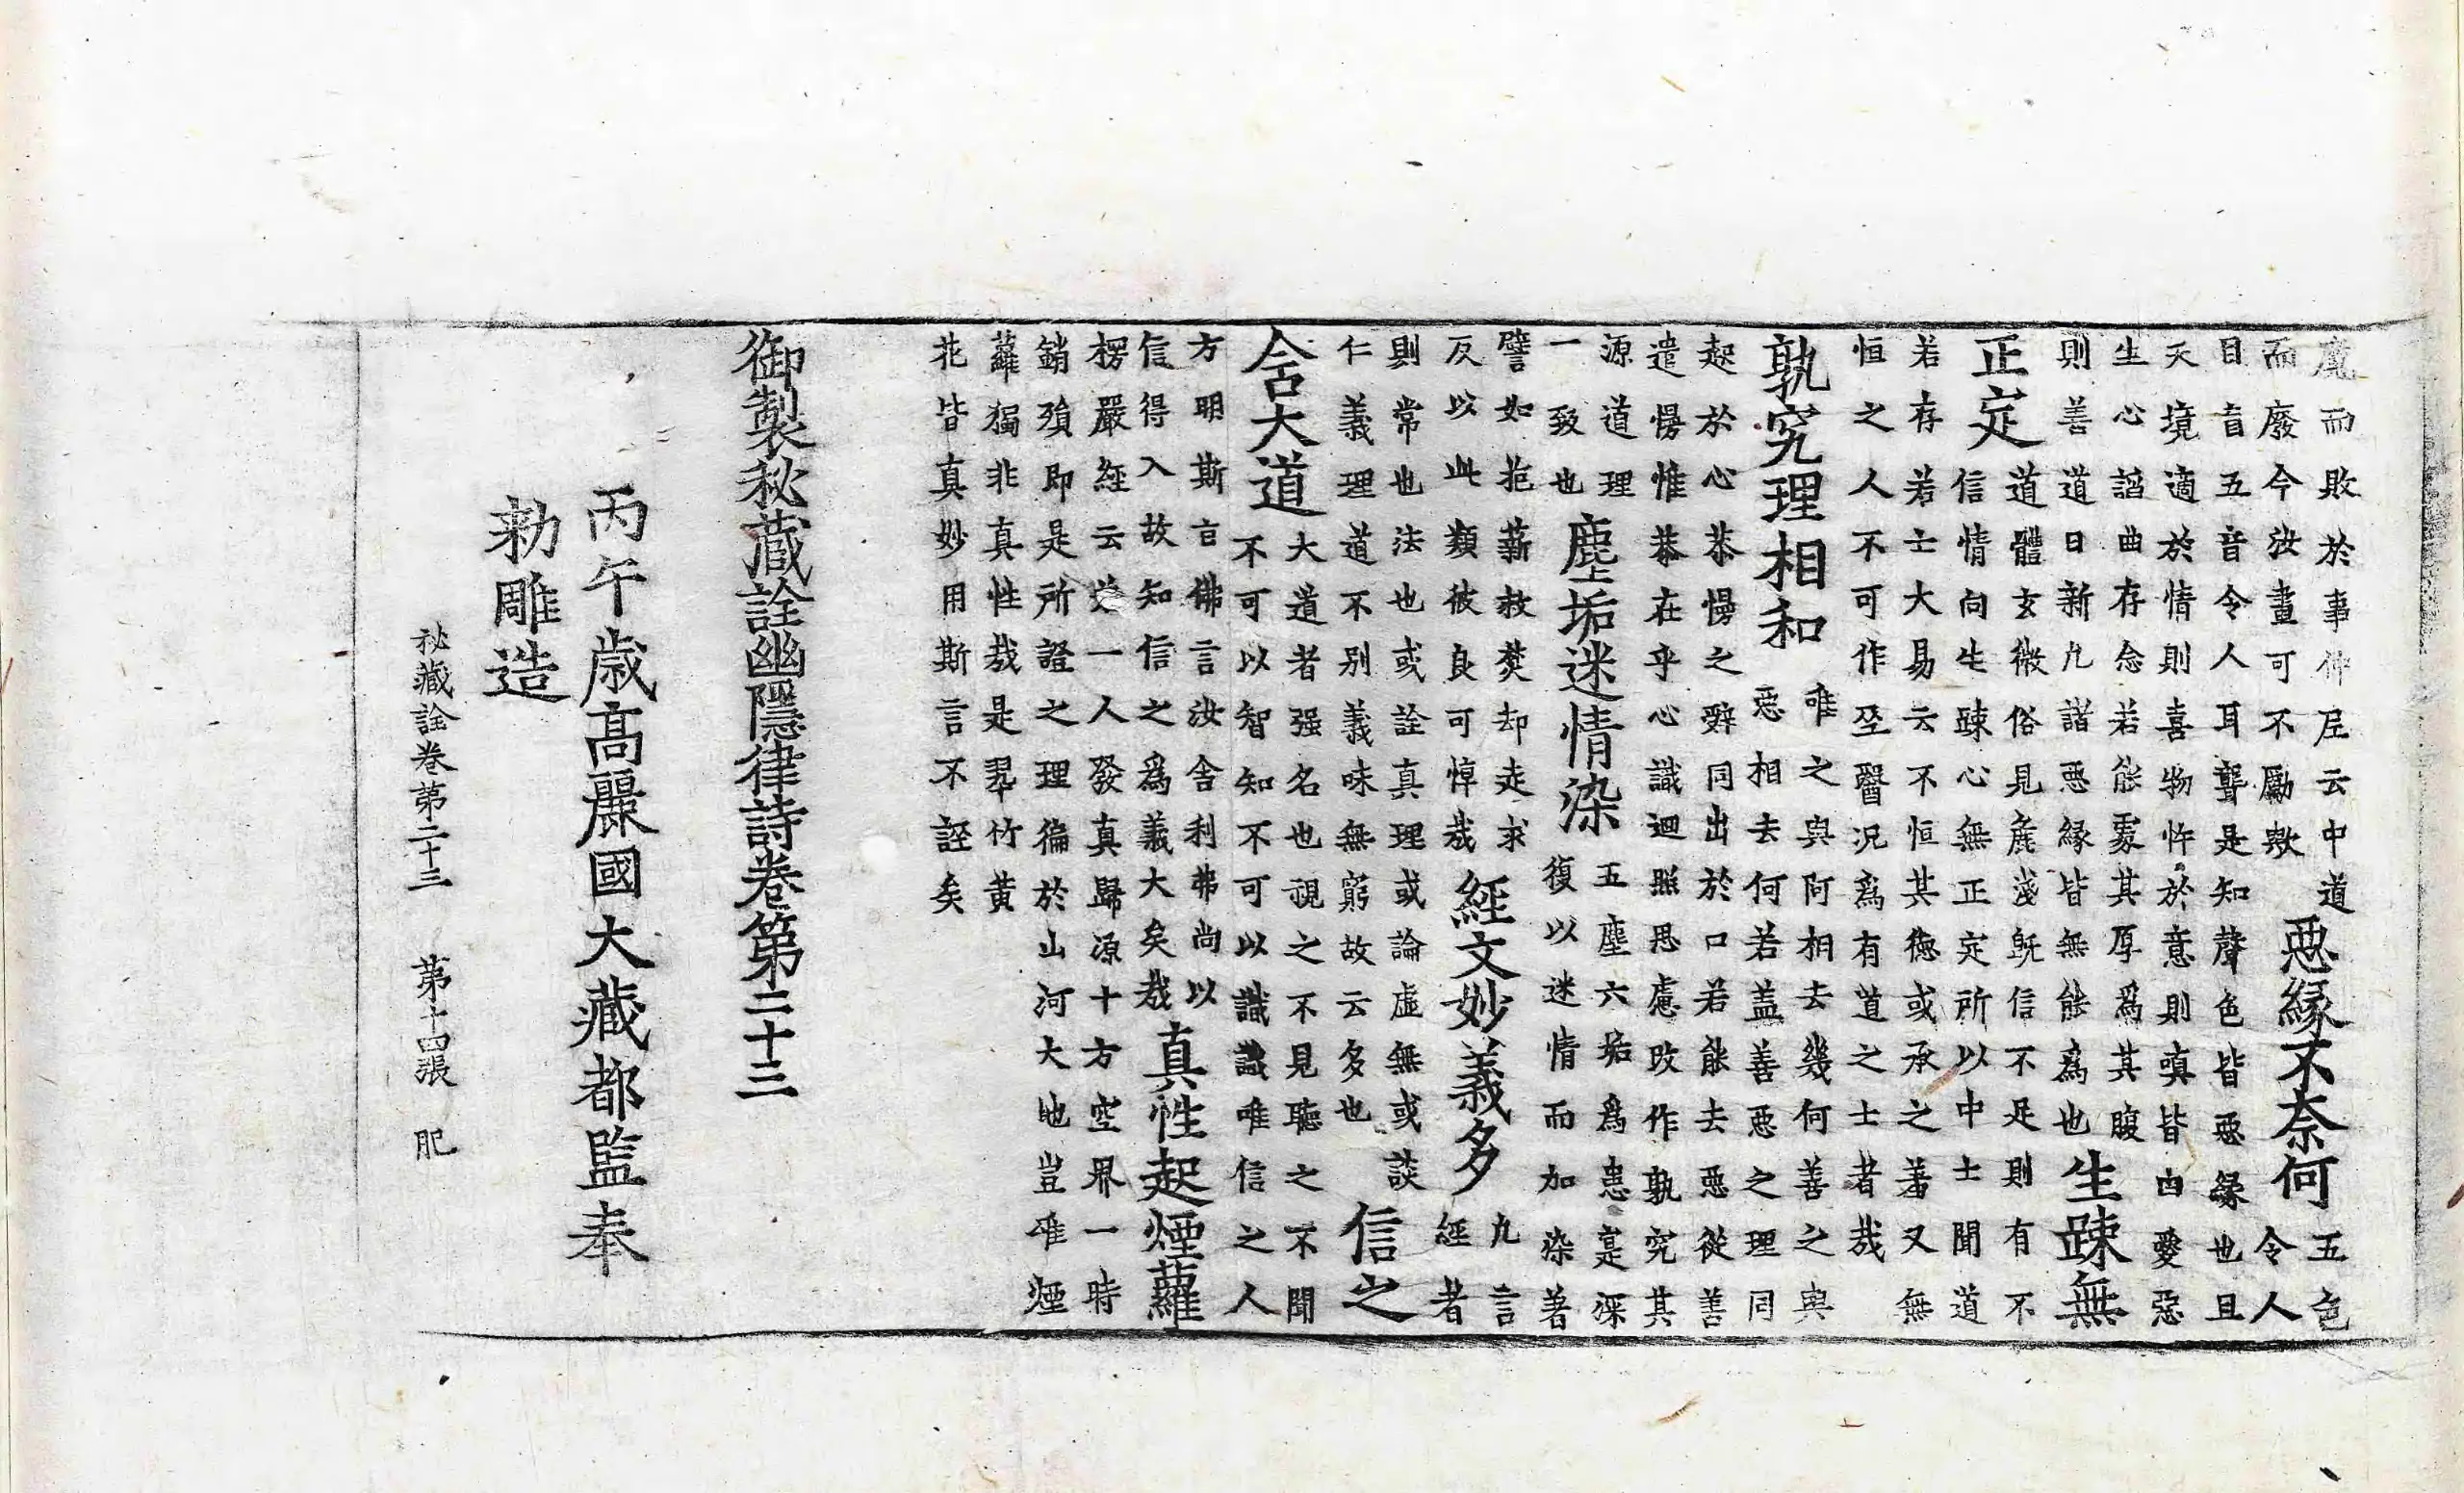 魔而敗於事仲尼云中道
而廢今汝畫可不勵歟
惡緣不奈何
五色
令人
目盲五音令人耳聾是知聲色皆惡緣也且
天境適於情則喜物忤於意則嗔皆由愛惡
生心謟曲存念若能處其厚爲其腹
則善道日新凡諸惡緣皆無能爲也
生踈無
正定
道體玄微俗見麁淺旣信不足則有不
信情向生踈心無正定所以中士聞道
若存若士大易云不恒其德或承之羞又無
恒之人不可作巫醫况爲有道之士者哉
孰究理相和
唯之與阿相去幾何善之與
惡相去何若盖善惡之理同
起於心恭慢之辭同出於口若能去惡從善
遣慢惟恭在乎心識迴照思慮改作孰究其
源道理
一致也
塵垢迷情染
五塵六垢爲患寔深
復以迷情而加染著
譬如抱薪救焚却走求
反以此類彼良可悼哉
經文妙義多
凡言
經者
則常也法也或詮真理或論虛無或談
仁義理道不別義味無窮故云多也
信之
舍大道
大道者强名也視之不見聽之不聞
不可以智知不可以識識唯信之人
方明斯言佛言汝舍利弗尚以
信得入故知信之爲義大矣哉
真性起煙蘿
楞嚴經云一人發真歸源十方空界一時
銷殞即是所證之理徧於山河大地豈唯煙
蘿獨非真性哉是翠竹黄
花皆真妙用斯言不誣矣
御製秘蔵詮幽隱律詩卷第二十三
丙午歳高麗國大藏都監奉
勑雕造
祕藏詮卷第二十三 第十四張 肥